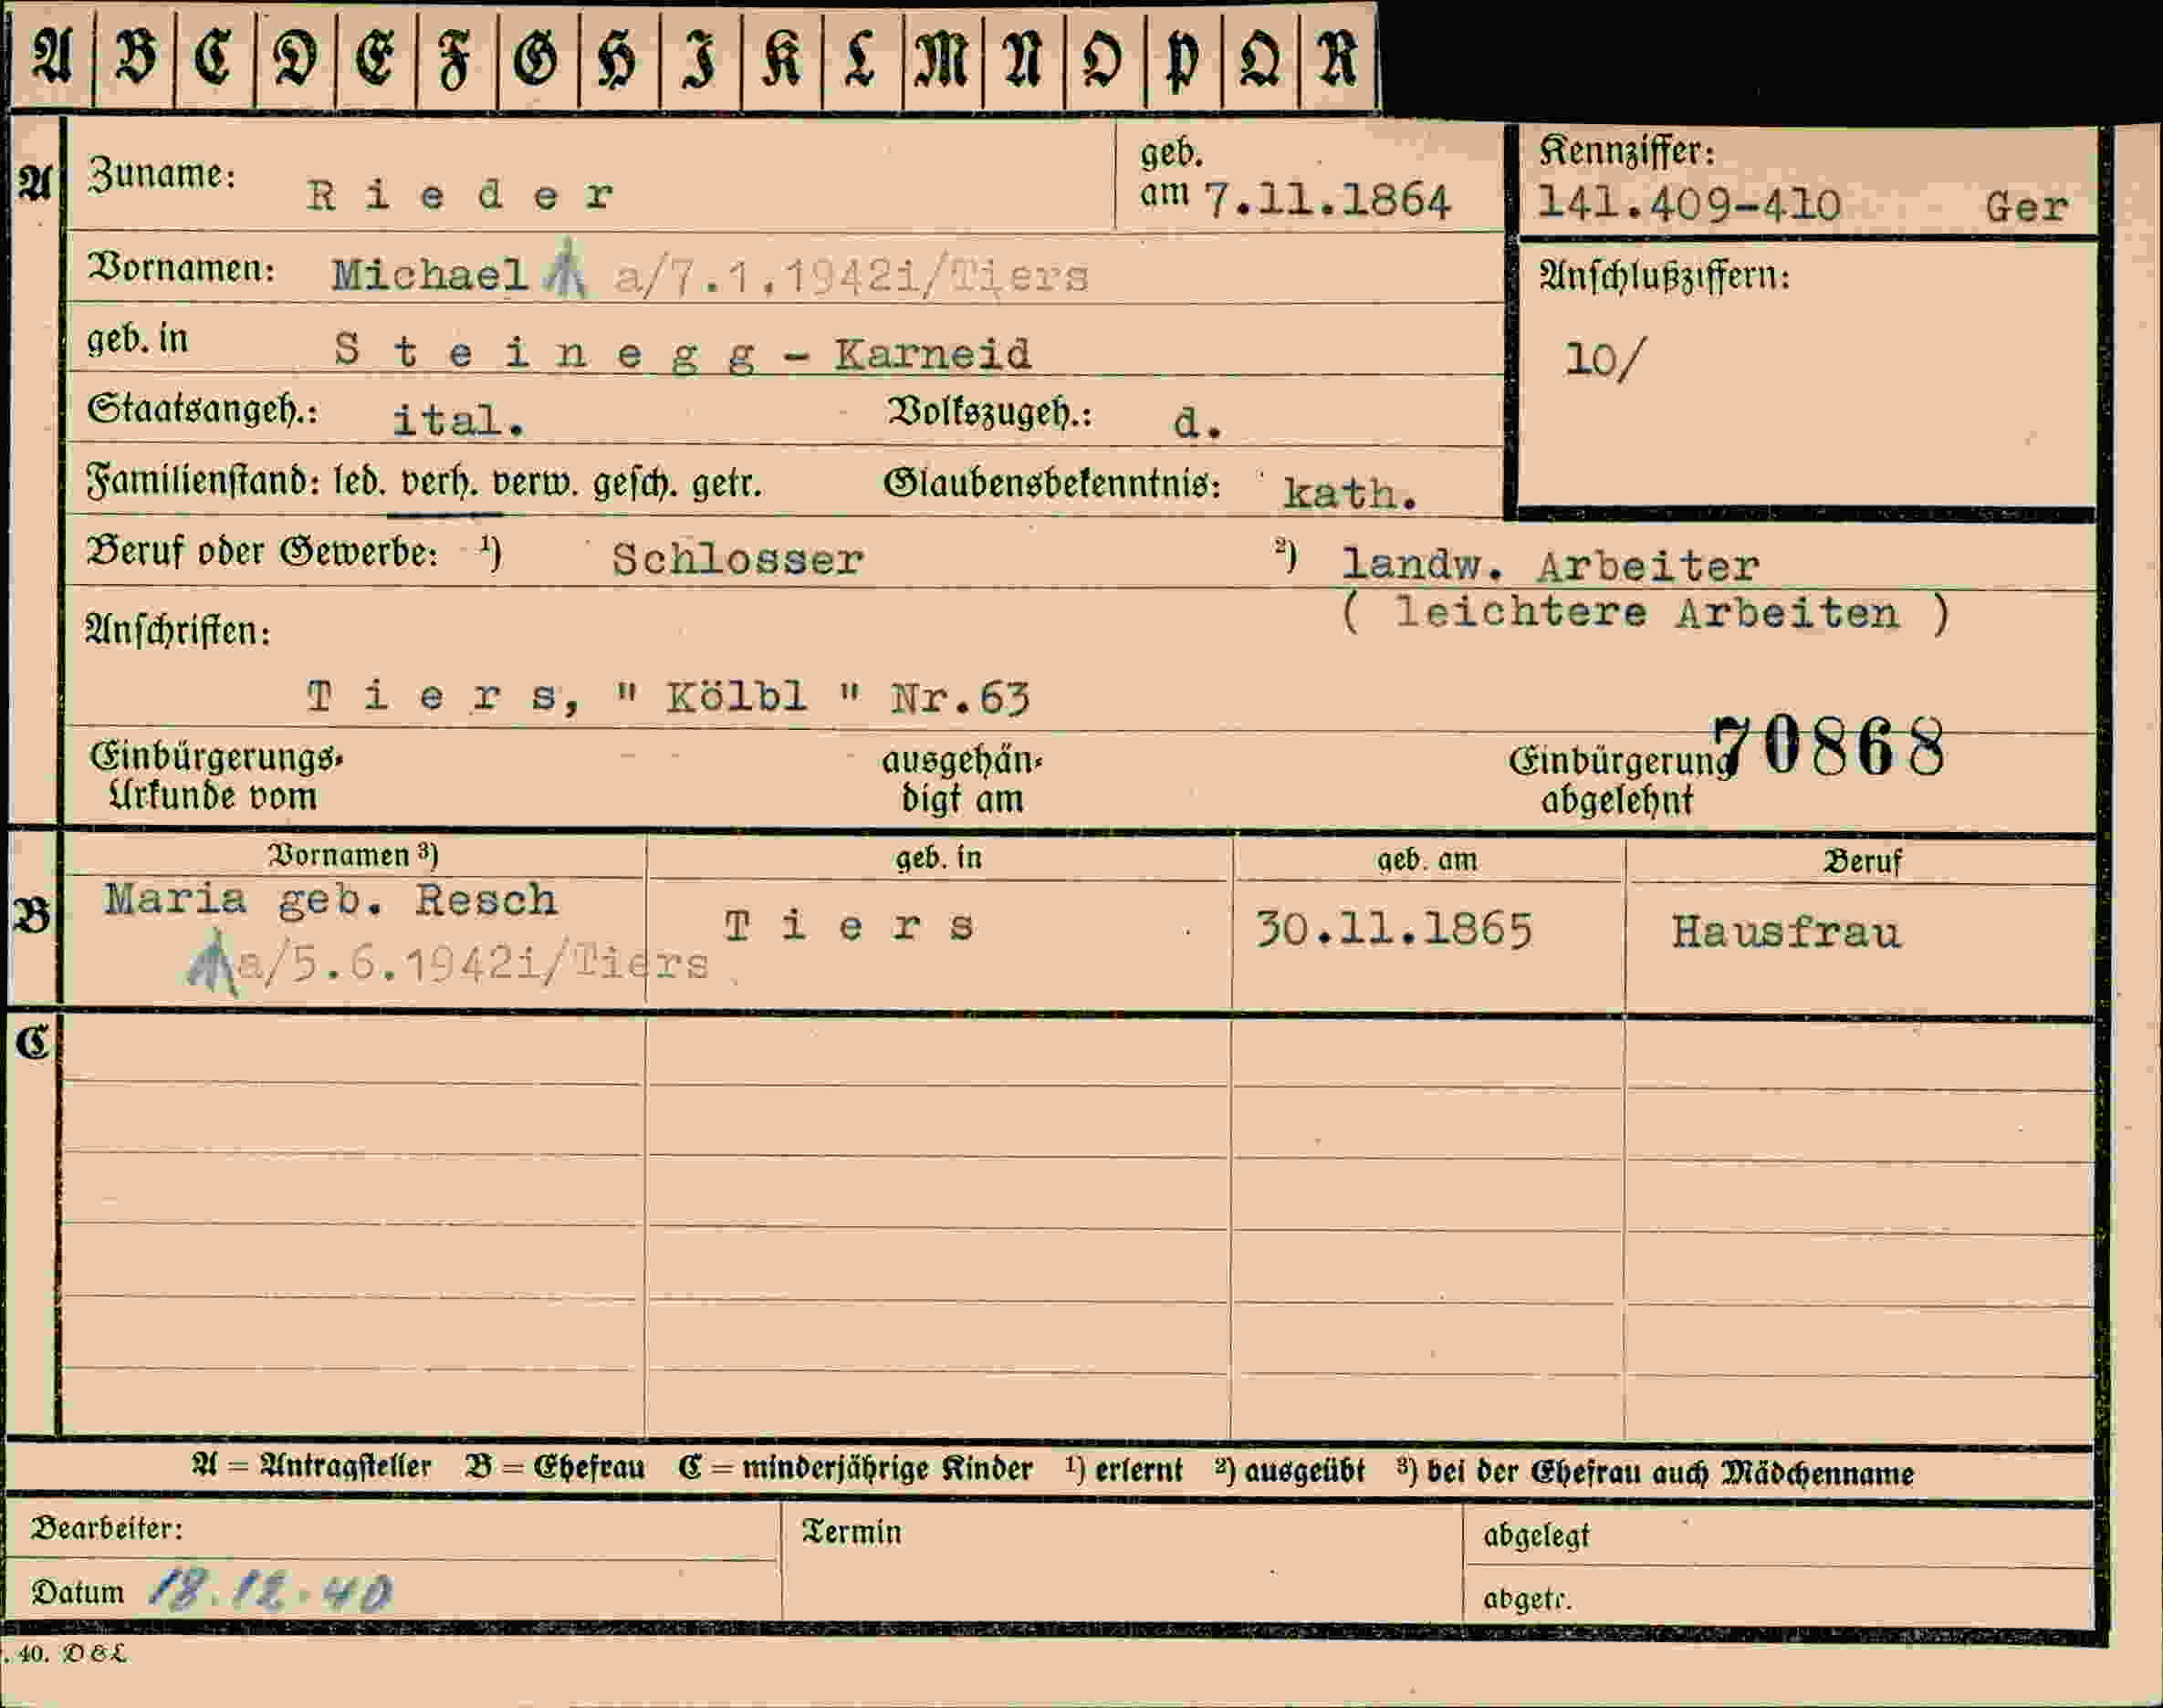 A B C D E F G H I K L M N O P Q R
A Zuname: Rieder geb. am 7.11.1864 Kennziffer: 141.409-410 Ger
Vornamen: Michael a/7.1.1942i/Tiers Anschlußziffern:
geb. in Steinegg - Karneid 10/
Staatsangeh.: ital. Volkszugeh.: d.
Familienstand: led. verh. verw. gesch. getr. Glaubensbekenntnis: kath.
Beruf oder Gewerbe: 1) Schlosser 2) landw. Arbeiter
( leichtere Arbeiten )
Anschriften:
Tiers, " Kölbl " Nr.63
70868
Einbürgerungs- ausgehän- Einbürgerung
Urkunde vom digt am abgelehnt
Vornamen 3) geb. in geb. am Beruf
B Maria geb. Resch Tiers 30.11.1865 Hausfrau
a/5.6.1942i/Tiers
C
A = Antragsteller B = Ehefrau C = minderjährige Kinder 1) erlernt 2) ausgeübt 3) bei der Ehefrau auch Mädchenname
Bearbeiter: Termin abgelegt
Datum 18.12.40 abgetr.
. 40. D & L